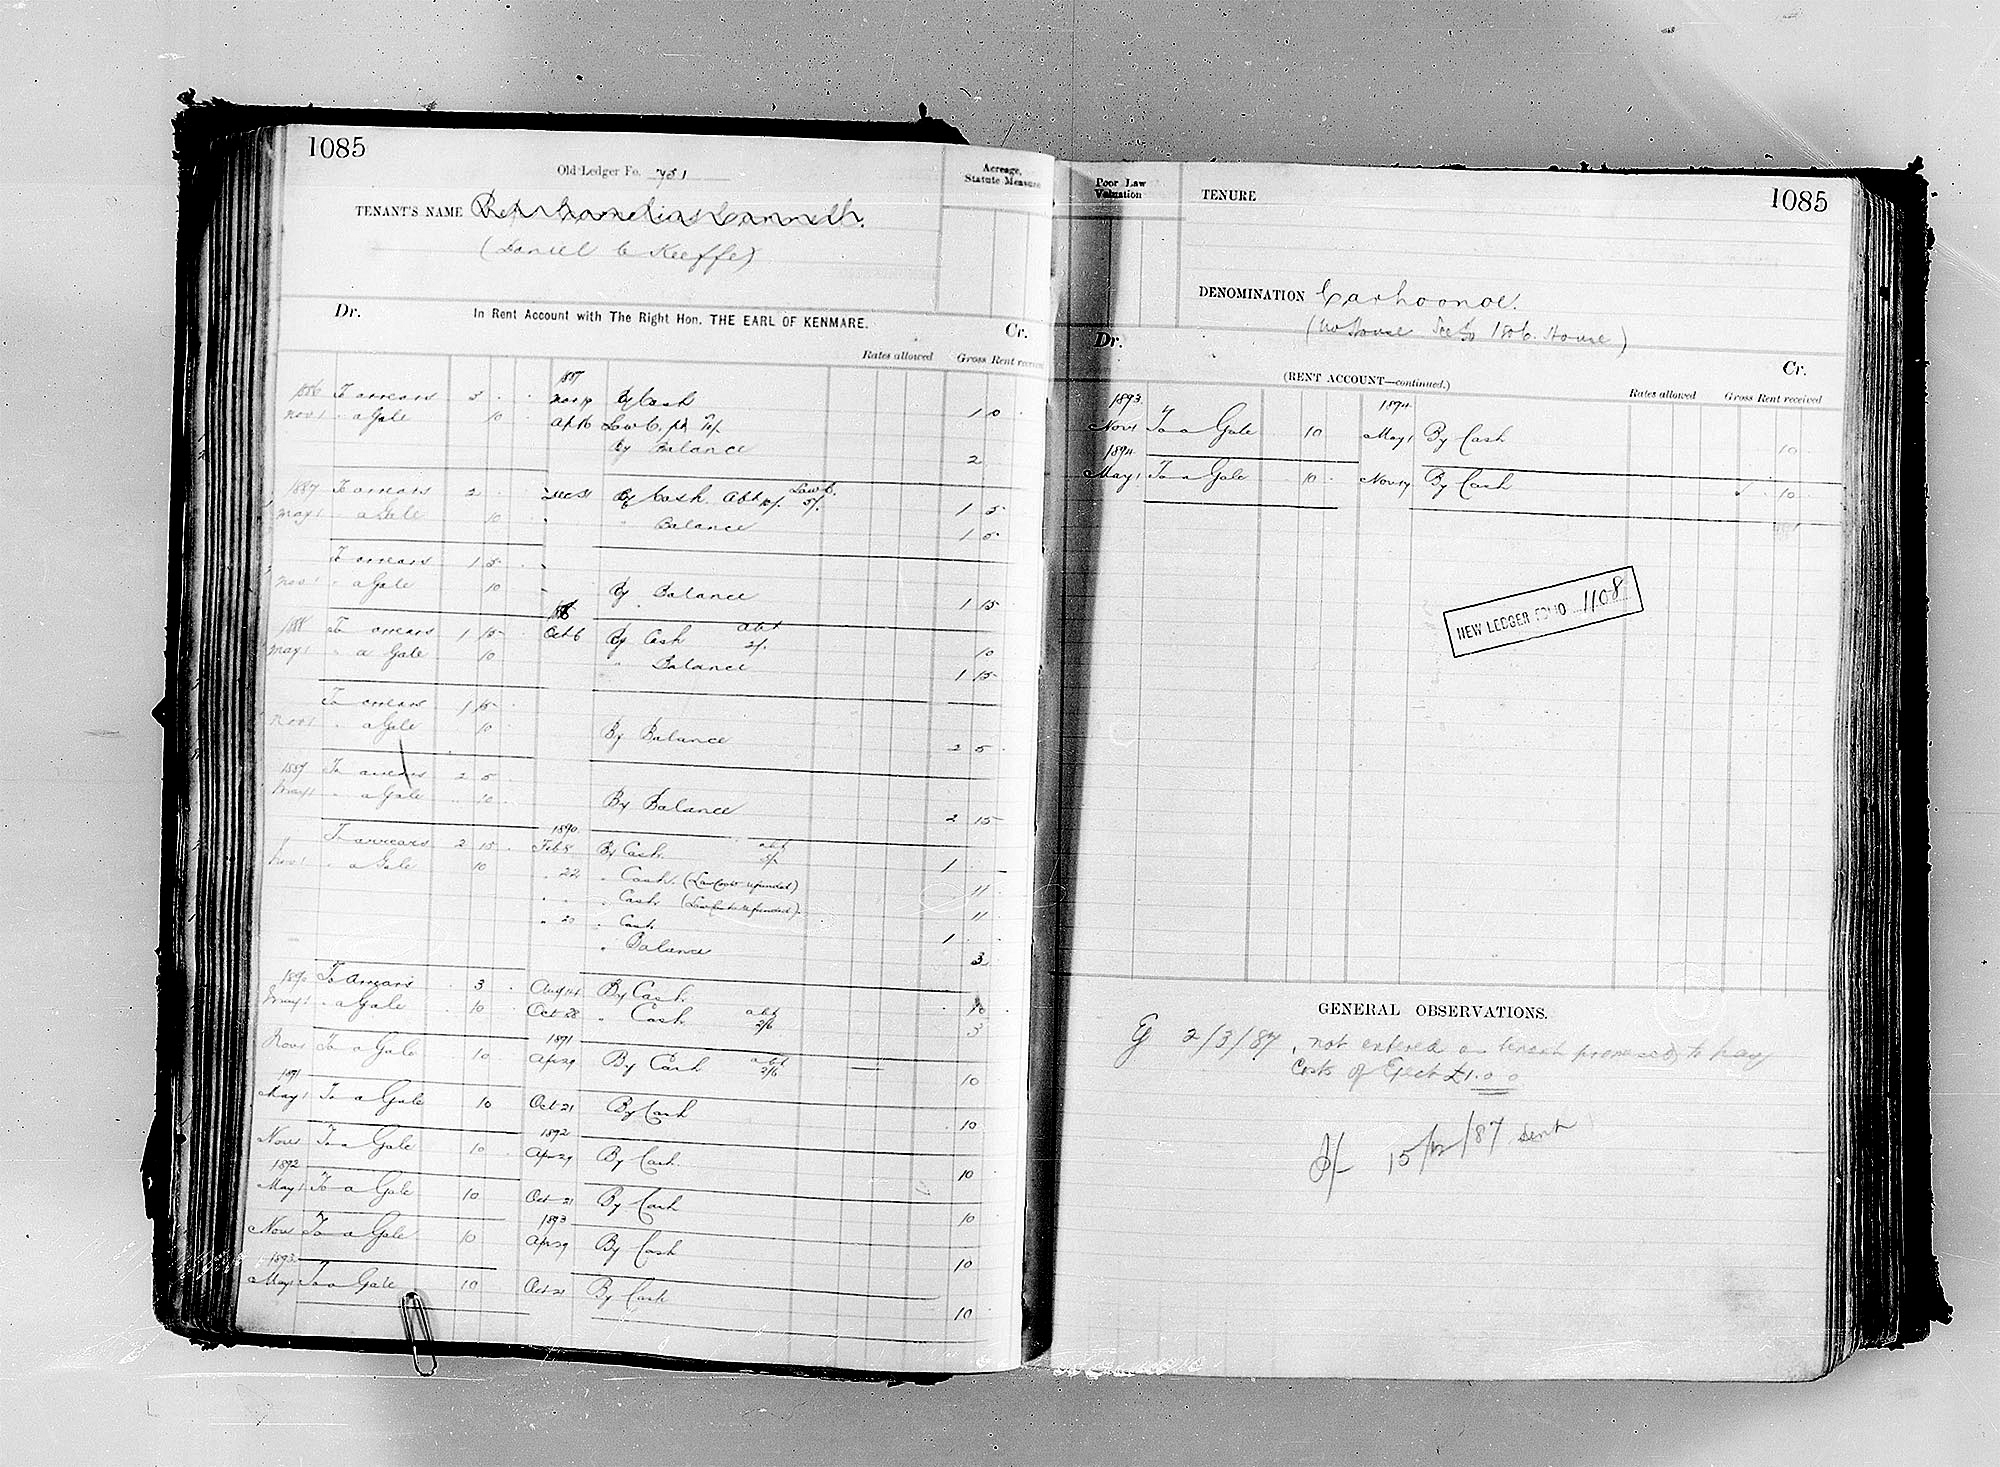 1085
Old Ledger Fo. 751
Acreage,
Statute Measure
TENANT'S NAME Reps Cornelius Connell.
(Daniel O Keeffe)
Dr. In Rent Account with The Right Hon. THE EARL OF KENMARE. Cr.
Rates allowed Gross Rent received
1887
1886 To arrears 3 Nov 19 By Cash 1 0
Nov 1 " a Gale 10 Apl 16 Law C.
By Balance 2
1887 To arrears 2 Dec 31 By Cash Abt 10/. Law C. 5/. 1 5
May 1 " a Gale 10 " Balance 1 5
To arrears 1 5
Nov 1 " a Gale 10 By Balance 1 15
1888 To arrears 1 15 Oct 6 By Cash abt 2/. 10
May 1 " a Gale 10 " Balance 1 15
To arrears 1 15
Nov 1 " a Gale 10 By Balance 2 5
1889 To arrears 2 5
May 1 " a Gale 10 By Balance 2 15
1890
To arrears 2 15 Feb 8 By Cash abt 5/. 1
Nov 1 " a Gale 10 " 22 " Cash (Law Costs refunded) 11
" " " Cash (Law Costs refunded) 11
" 20 " Cash 1
" Balance 3
1890 To Arrears 3 Aug 14 By Cash 10
May 1 " a Gale 10 Oct 28 " Cash abt 2/6 3
1891
Nov 1 To a Gale 10 Apr 29 By Cash abt 2/6 10
1891
May 1 To a Gale 10 Oct 21 By Cash 10
1892
Nov 1 To a Gale 10 Apr 29 By Cash 10
1892
May 1 To a Gale 10 Oct 21 By Cash 10
1893
Nov 1 To a Gale 10 Apr 29 By Cash 10
1893
May 1 To a Gale 10 Oct 21 By Cash 10
Poor Law
Valuation
TENURE
1085
DENOMINATION Carhoonoe.
(No House See fo 1806. House)
Dr. Cr.
(RENT ACCOUNT—continued.)
Rates allowed Gross Rent received
1893 1894
Nov 1 To a Gale 10 May 1 By Cash 10
1894
May 1 To a Gale 10 Nov 17 By Cash 10
NEW LEDGER FOLIO 1108
GENERAL OBSERVATIONS.
Ej 2/3/87, not entered as tenant promised to pay
Costs of Eject £1.0.0
15/12/87 sent